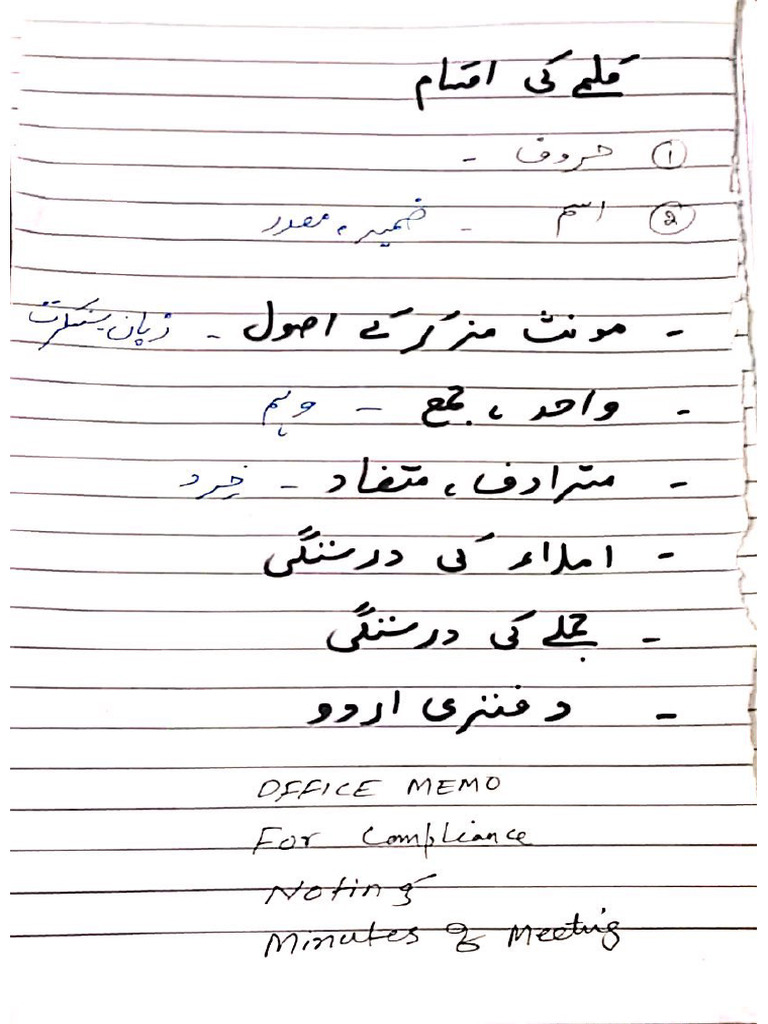 کلمے کی اقسام
① حروف -
② اسم - ضمیر، مصدر
- مونث مذکر کے اصول - زبان سنسکرت
- واحد، جمع - وہم
- مترادف، متضاد - خِرد
- املاء کی درستگی
- جملے کی درستگی
- دفتری اردو
OFFICE MEMO
For Compliance
Noting
Minutes of Meeting